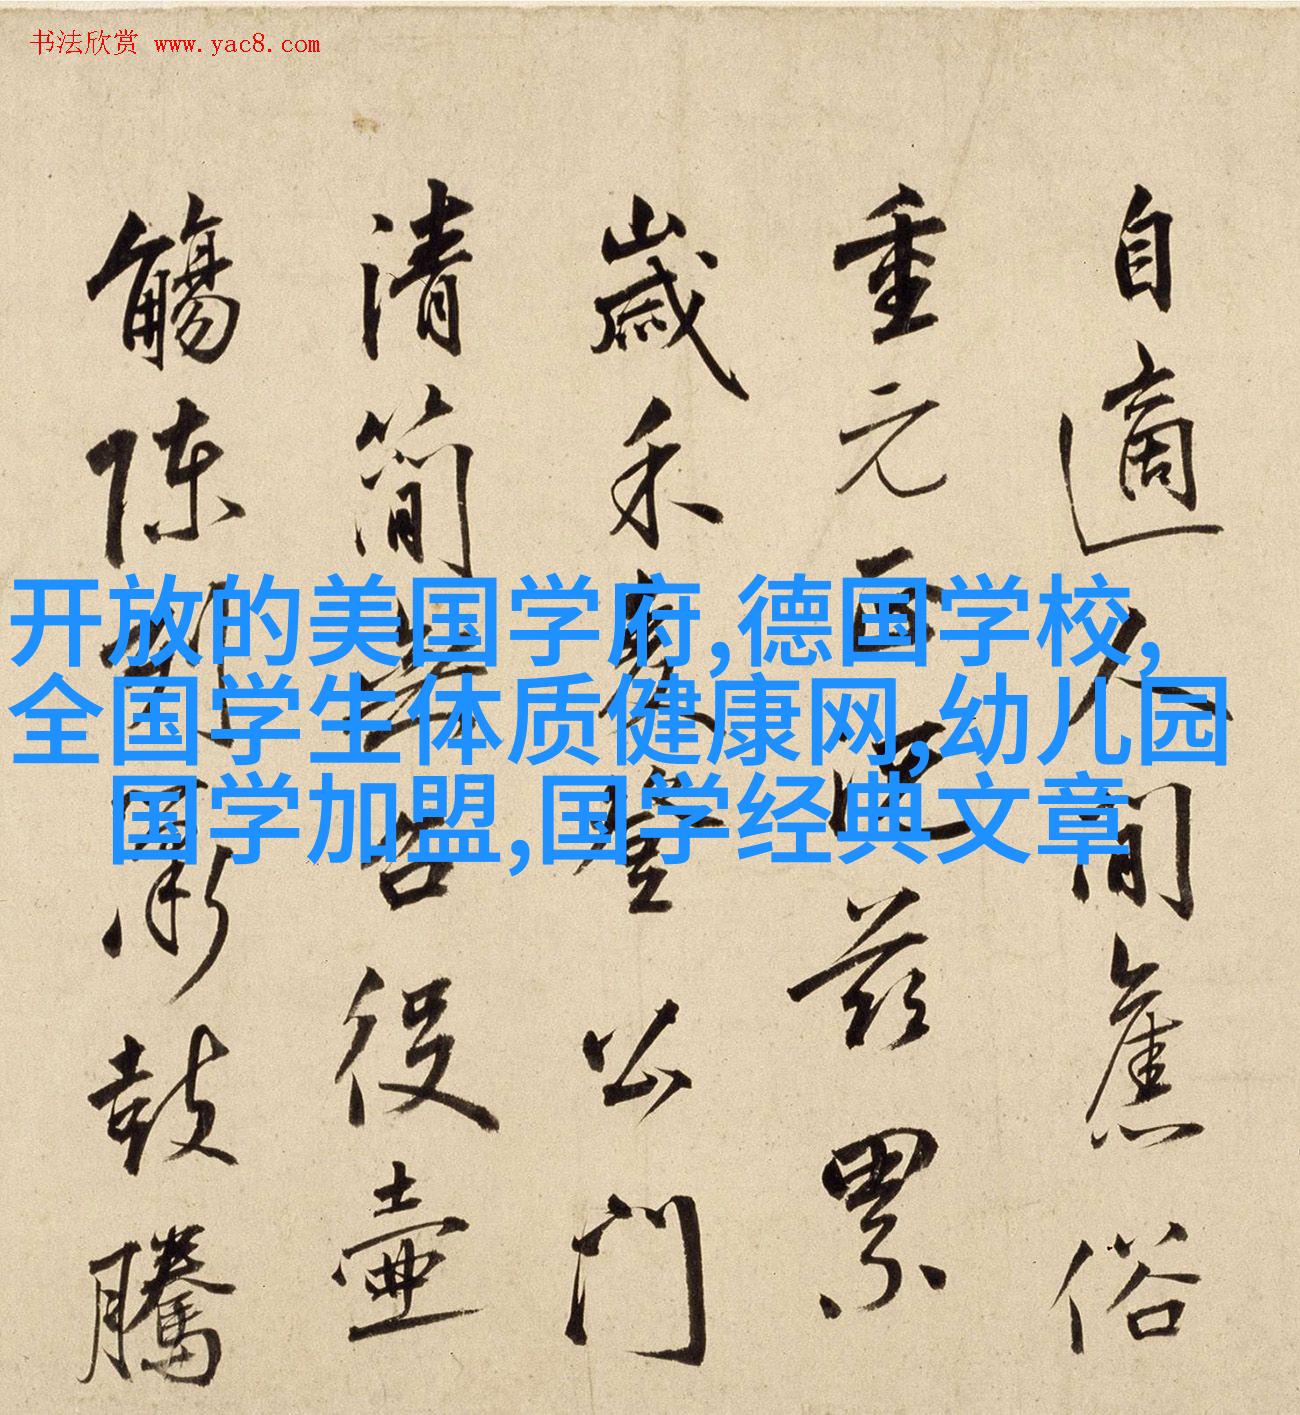 书法欣赏 www.yac8.com
自適人間舊俗
重元正況茲累
歲禾門
清簡役壺
觴陳鼓騰
开放的美国学府,德国学校,
全国学生体质健康网,幼儿园
国学加盟,国学经典文章